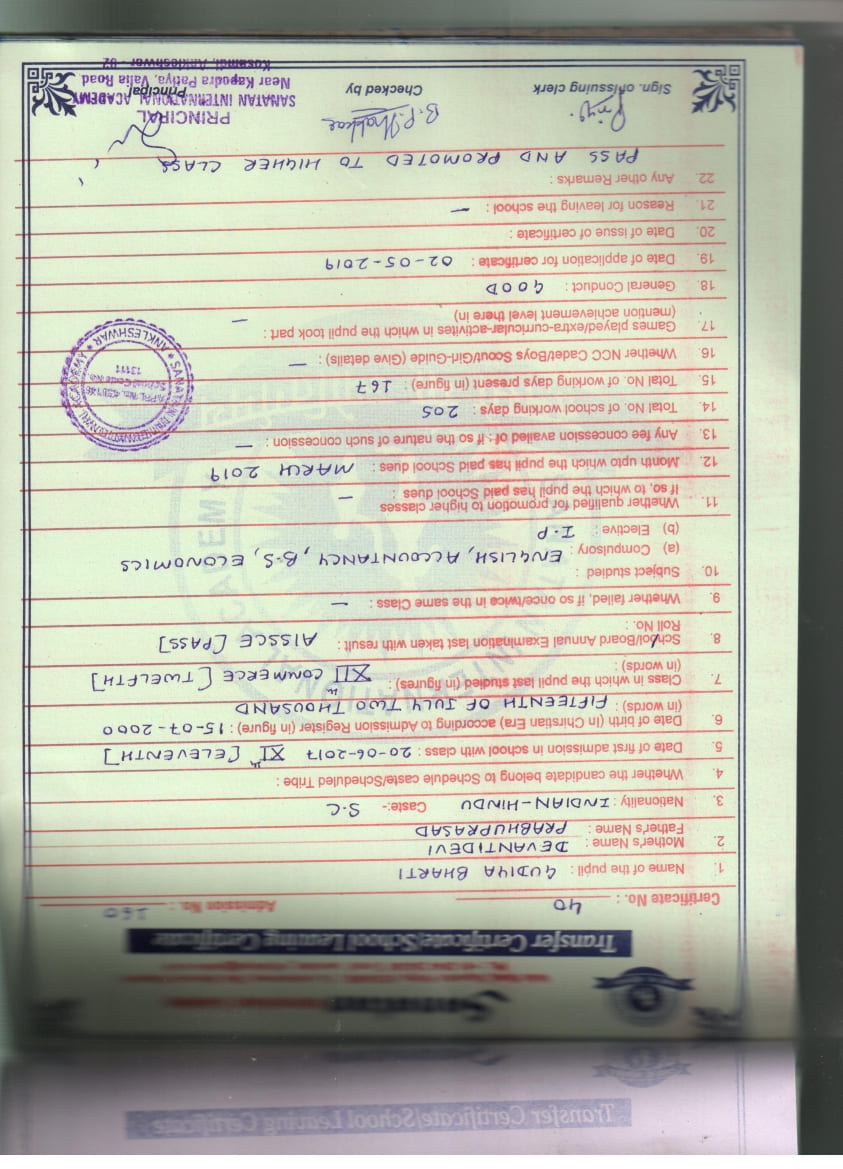 Sanatan
Transfer Certificate/School Leaving Certificate
Certificate No. : 40 Admission No. : 160
1. Name of the pupil : GUDIYA BHARTI
2. Mother's Name : DEVANTIDEVI
Father's Name : PRABHUPRASAD
3. Nationality : INDIAN-HINDU Caste:- S.C
4. Whether the candidate belong to Schedule caste/Scheduled Tribe :
5. Date of first admission in school with class : 20-06-2017 XIth [ELEVENTH]
6. Date of birth (in Chirstian Era) according to Admission Register (in figure) : 15-07-2000
(in words) : FIFTEENTH OF JULY TWO THOUSAND
7. Class in which the pupil last studied (in figures) : XIIth COMMERCE [TWELFTH]
(in words) :
8. School/Board Annual Examination last taken with result : AISSCE [PASS]
Roll No. :
9. Whether failed, if so once/twice in the same Class : —
10. Subject studied :
(a) Compulsory : ENGLISH, ACCOUNTANCY, B.S, ECONOMICS
(b) Elective : I.P
11. Whether qualified for promotion to higher classes
If so, to which the pupil has paid School dues : —
12. Month upto which the pupil has paid School dues : MARCH 2019
13. Any fee concession availed of : if so the nature of such concession : —
14. Total No. of school working days : 205
15. Total No. of working days present (in figure) : 167
16. Whether NCC Cadet/Boys Scout/Girl-Guide (Give details) : —
17. Games played/extra-curricular-activites in which the pupil took part :
(mention achievement level there in) —
18. General Conduct : GOOD
19. Date of application for certificate : 02-05-2019
20. Date of issue of certificate :
21. Reason for leaving the school : —
22. Any other Remarks :
PASS AND PROMOTED TO HIGHER CLASS
SANATAN INTERNATIONAL ACADEMY * ANKLESHWAR *
School Code No.
13111
B.P. Thakkar
PRINCIPAL
Sign. of issuing clerk Checked by Principal
SANATAN INTERNATIONAL ACADEMY
Near Kapodra Patiya, Valia Road
Kosamdi, Ankleshwar - 02
Transfer Certificate/School Leaving Certificate